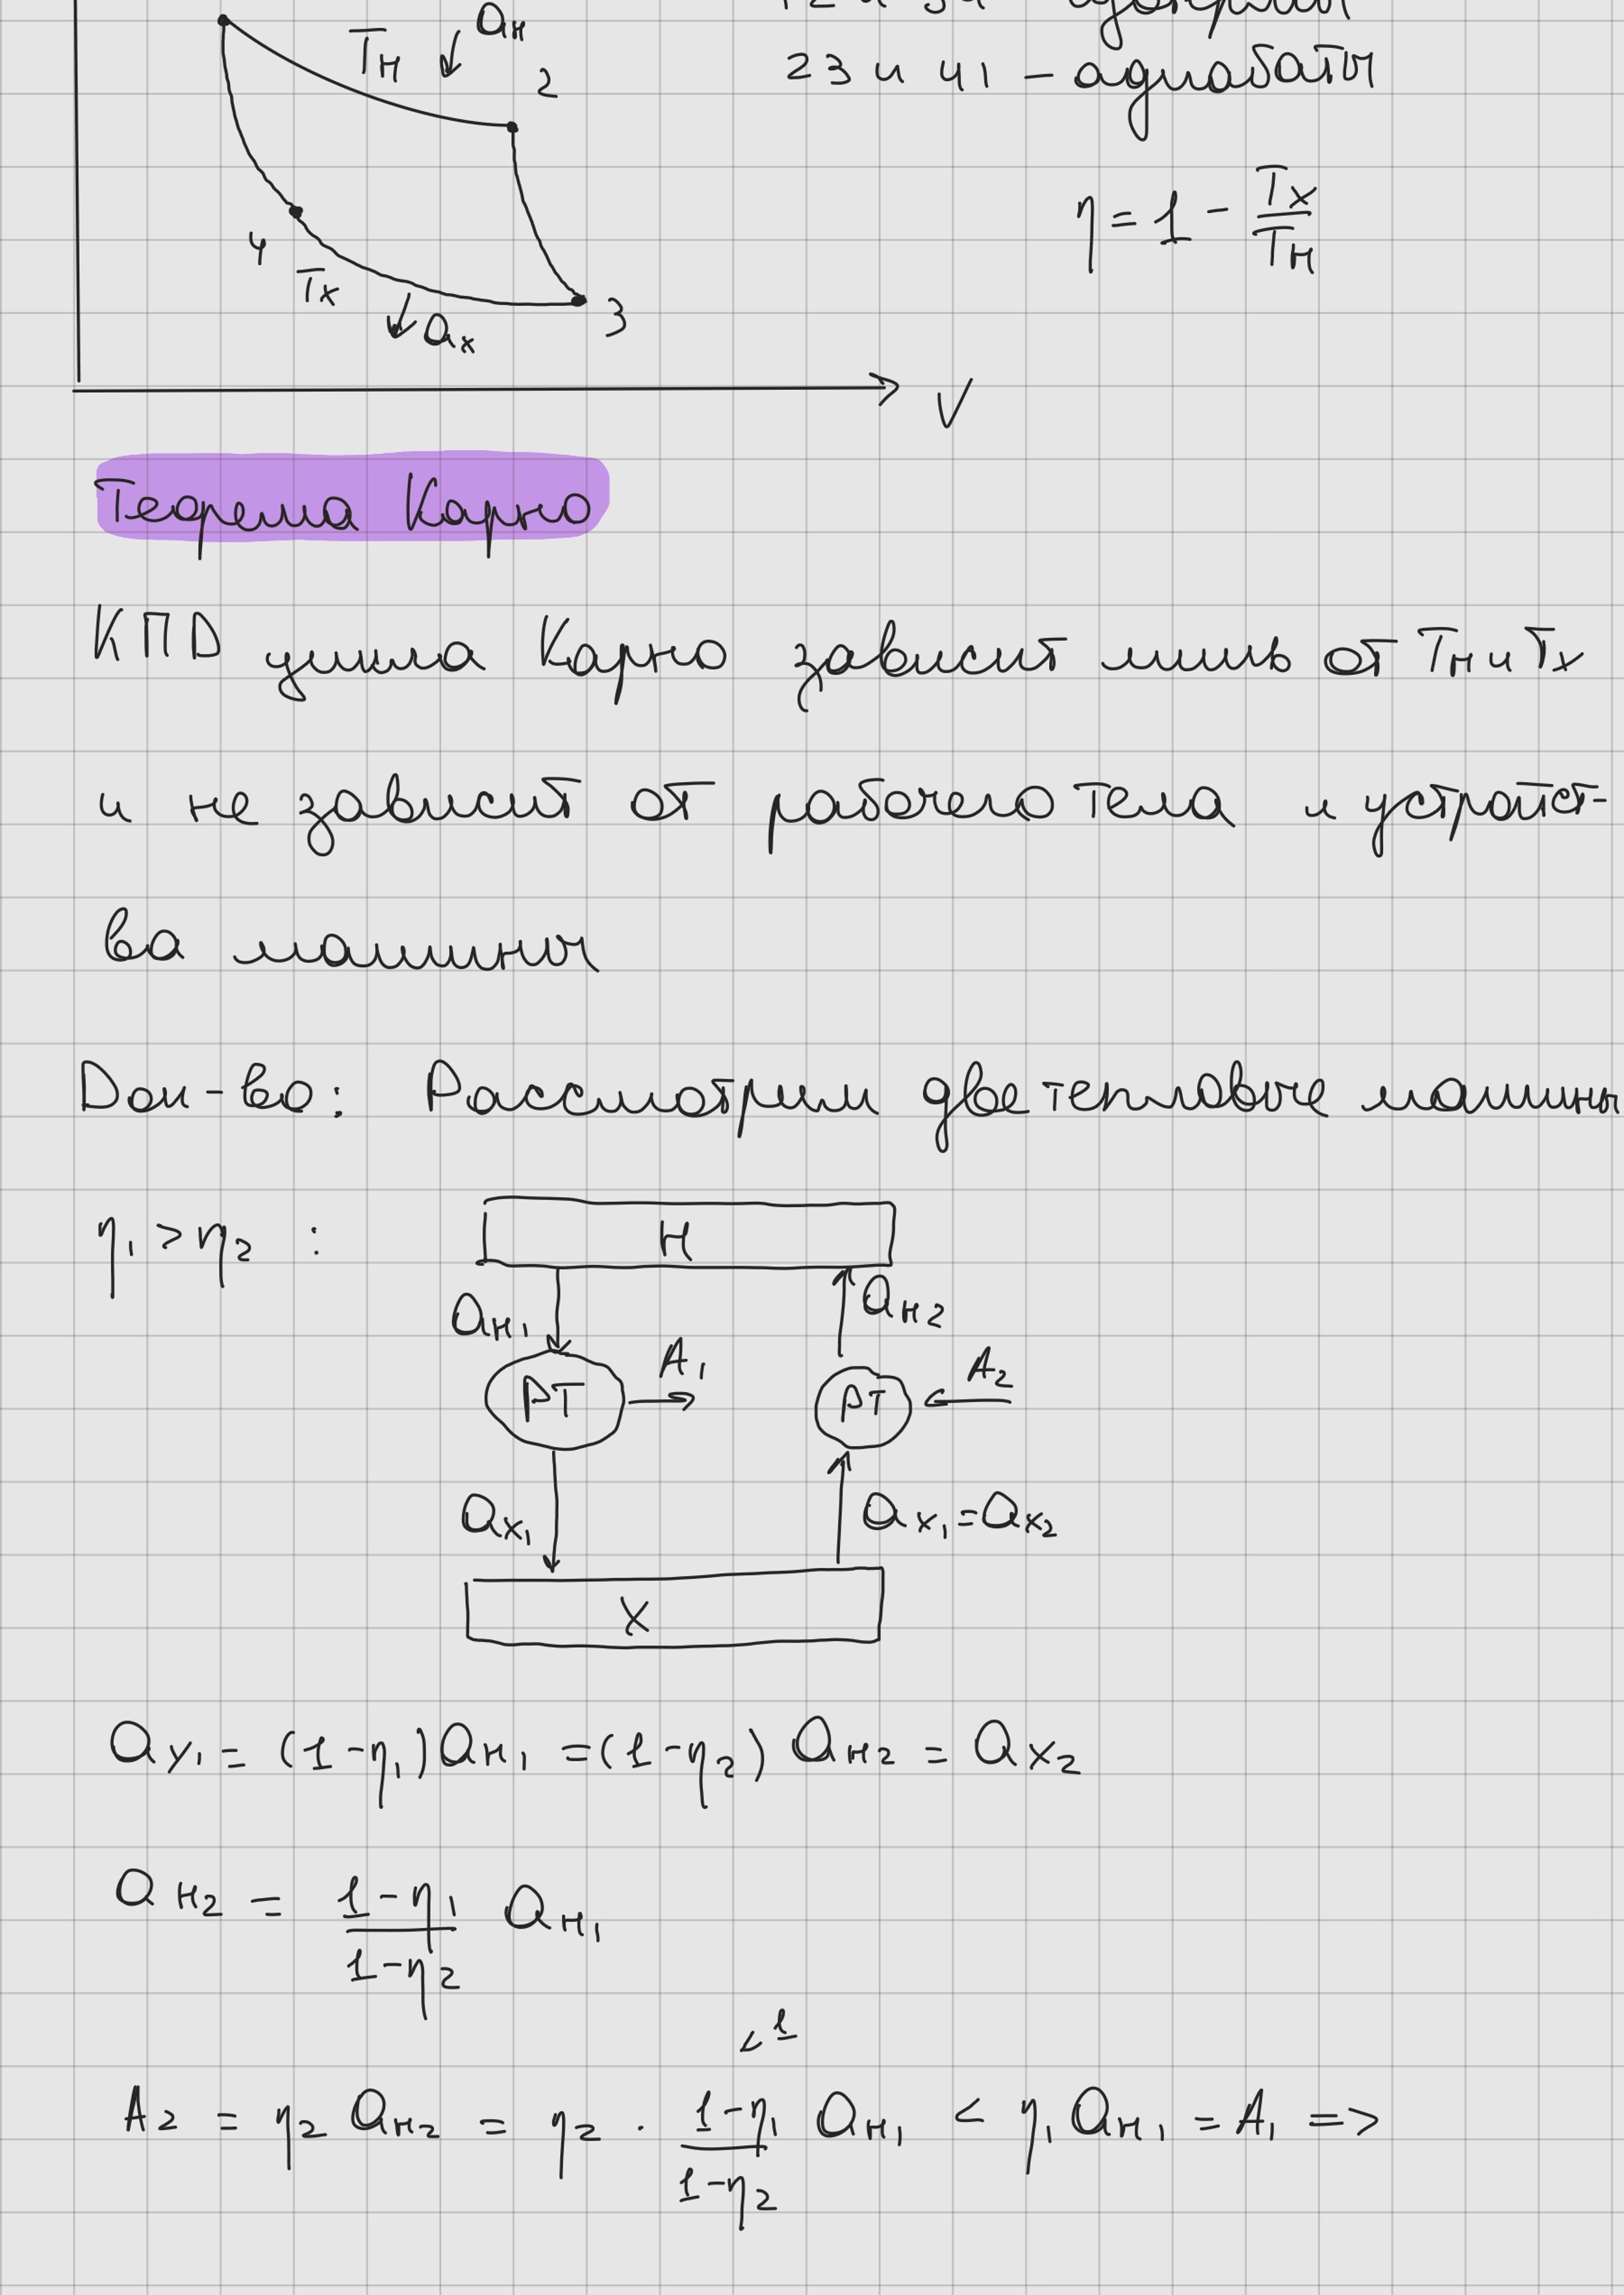 23 и 41 – адиабаты
Tн
Qн
2
η = 1 - Tх/Tн
4
Tх
Qх
3
V
Теорема Карно
КПД цикла Карно зависит лишь от Tн и Tх
и не зависит от рабочего тела и устройст-
ва машины
Док-во: Рассмотрим две тепловые машины
η₁ > η₂ :
Н
Qн₁
Qн₂
РТ
A₁
РТ
A₂
Qх₁
Qх₁ = Qх₂
Х
Qх₁ = (1-η₁)Qн₁ = (1-η₂) Qн₂ = Qх₂
Qн₂ = (1-η₁)/(1-η₂) Qн₁
<1
A₂ = η₂ Qн₂ = η₂ · (1-η₁)/(1-η₂) Qн₁ < η₁ Qн₁ = A₁ =>